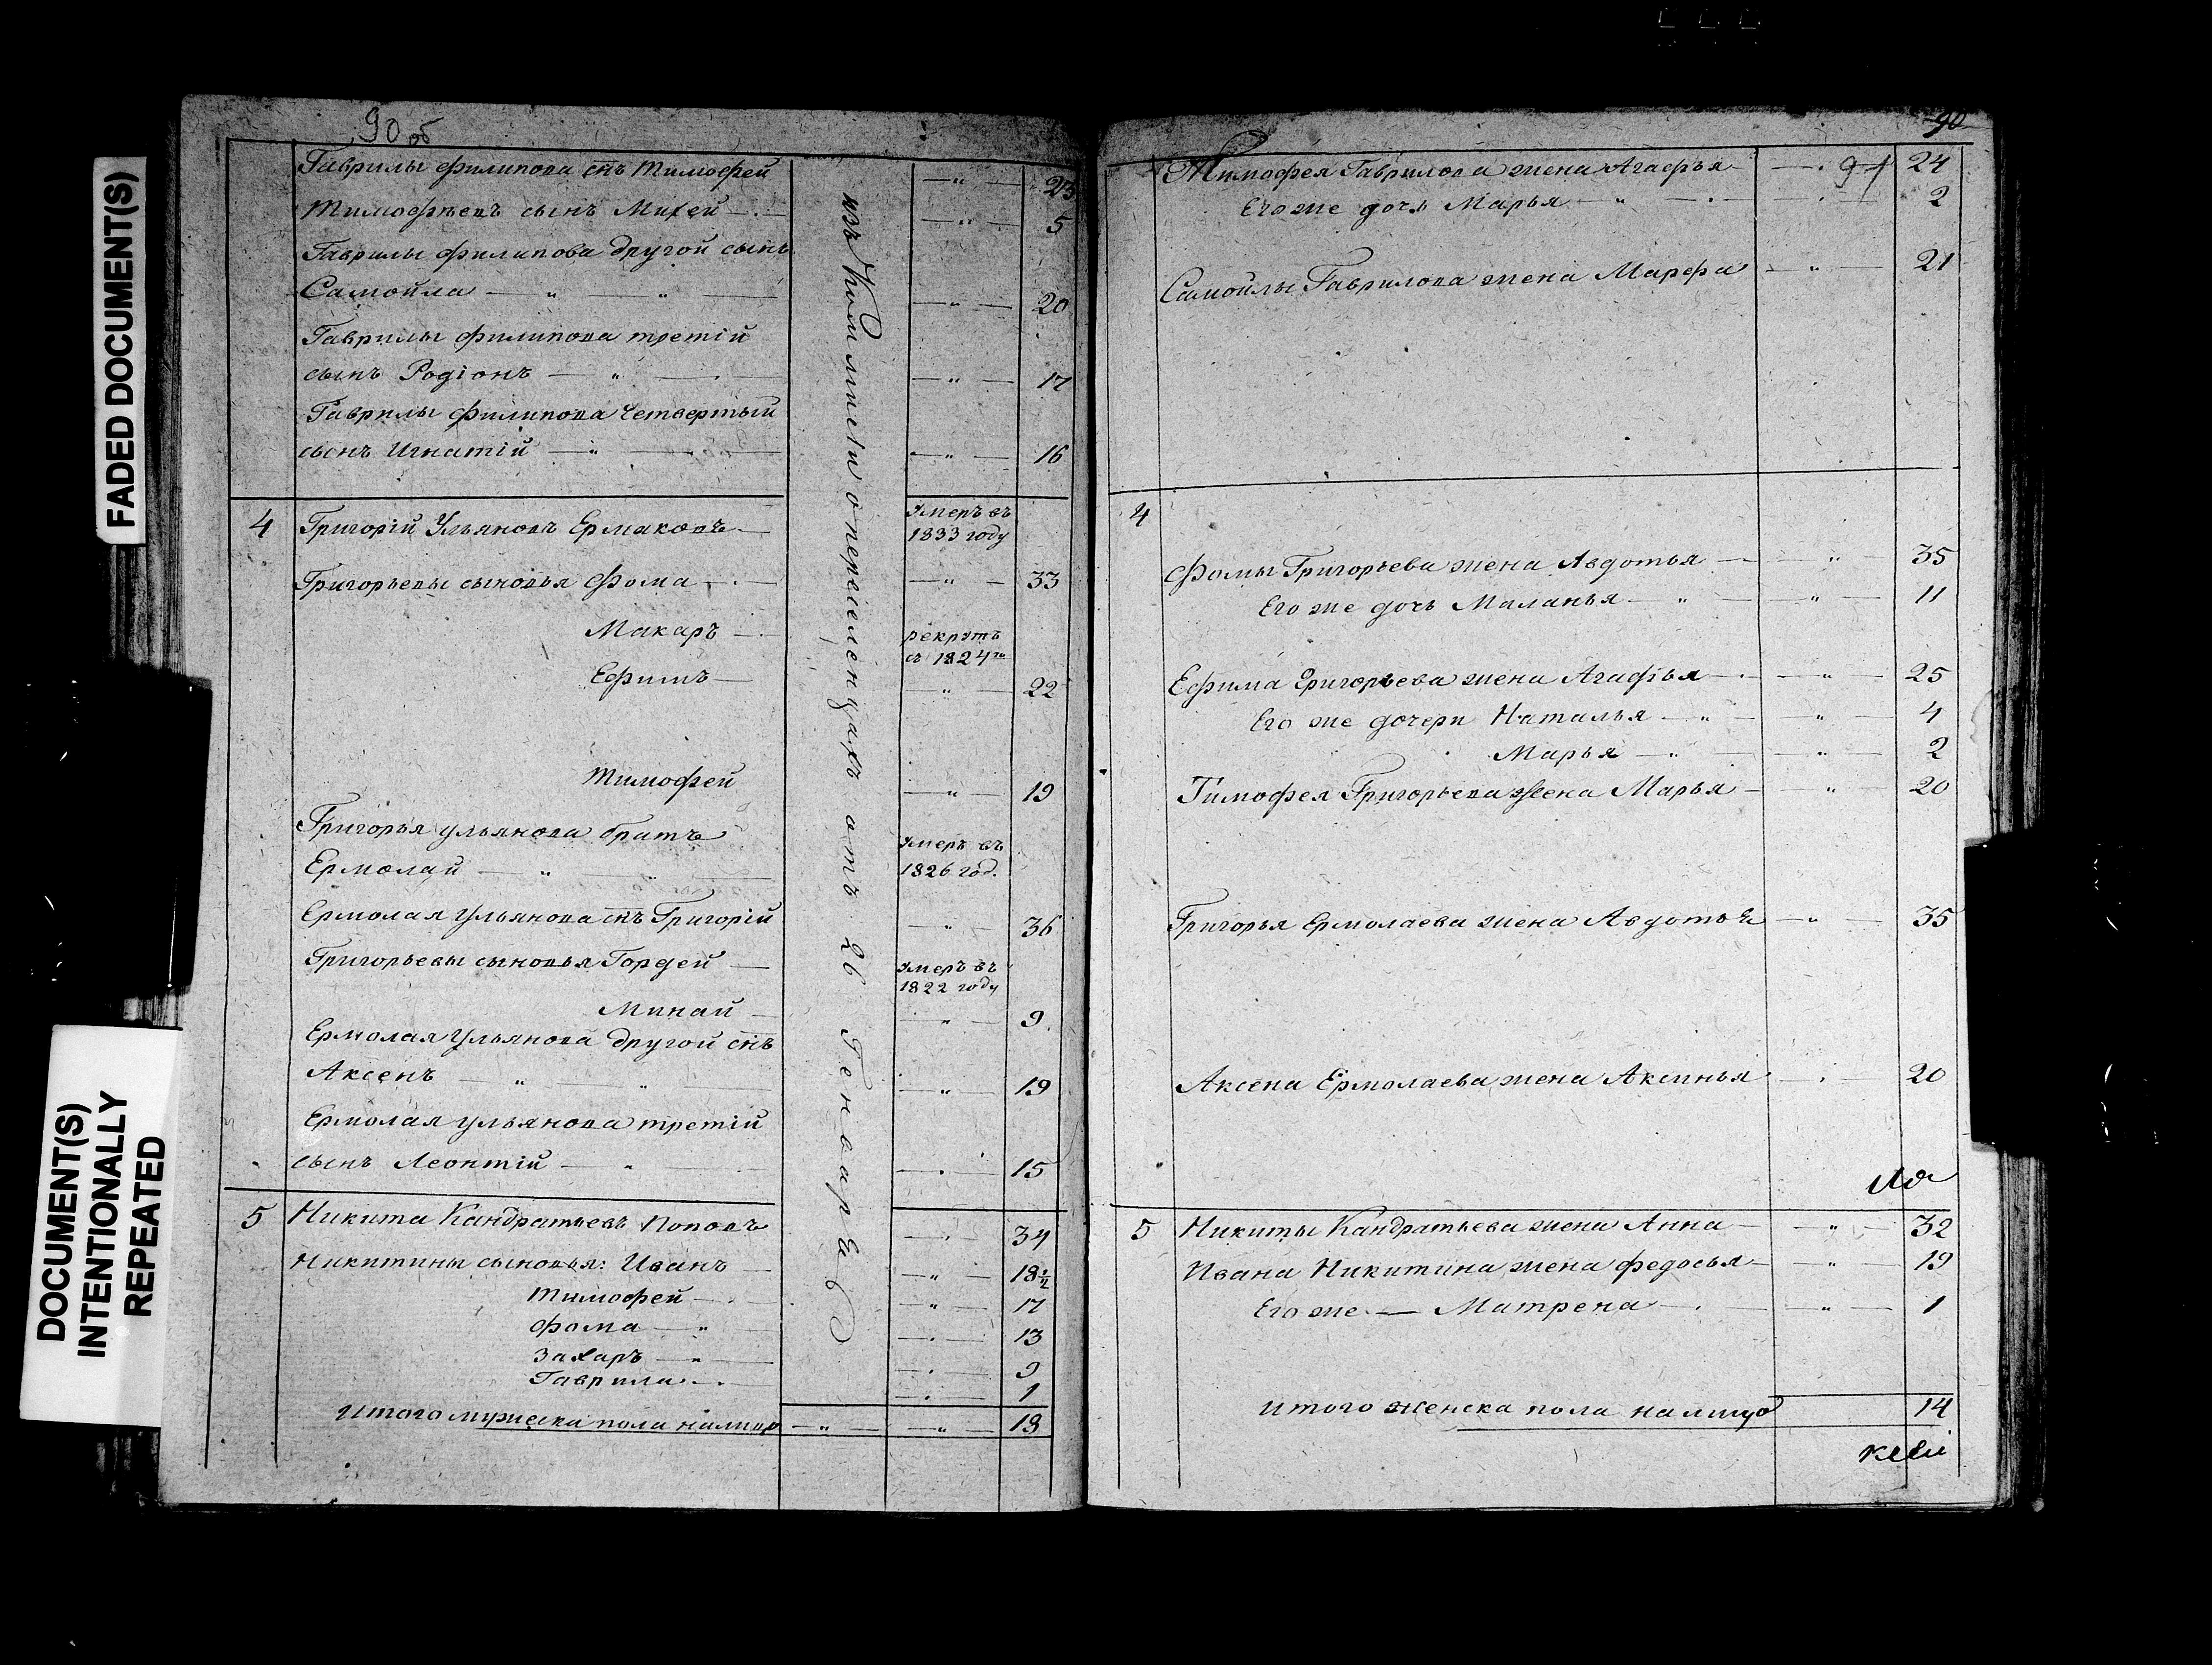 FADED DOCUMENT(S)
DOCUMENT(S)
INTENTIONALLY
REPEATED
90 об
Гаврилы Филипова снъ Тимофей — " — 23
Тимофѣевъ сынъ Михей — " — 5
Гаврилы Филипова другой сынъ
Самойла — " — " — — " — 20
Гаврилы Филипова третій
сынъ Родіонъ — " — — " — 17
Гаврилы Филипова Четвертый
сынъ Игнатій — " — — " — 16
4 Григорій Ульяновъ Ермаковъ — умеръ въ
1833 году
Григорьевы сыновья Фома — " — 33
Макаръ — рекрутъ
съ 1824го
Ефимъ — " — 22
Тимофей — " — 19
Григорья Ульянова братъ
Ермолай — " — умеръ въ
1826 год.
Ермолая Ульянова снъ Григорій — " — 36
Григорьевы сыновья Гордей — умеръ въ
1822 году
Минай — " — 9
Ермолая Ульянова другой снъ
Аксенъ — " — " — — " — 19
Ермолая Ульянова третій
сынъ Леонтій — " — — " — 15
5 Никита Кандратьевъ Поповъ — " — 34
Никитины сыновья: Иванъ — " — 18 ½
Тимофей — " — 17
Фома — " — 13
Захаръ — " — 9
Гаврила — " — 1
Итого мужеска пола налицо — " — — " — 18
переселенцахъ отъ 26 Генваря
90
91
Тимофея Гаврилова жена Агафья — 24
Его же дочь Марья — " — 2
Самойлы Гаврилова жена Марфа — " — 21
4
Фомы Григорьева жена Авдотья — " — 35
Его же дочь Маланья — " — " — 11
Ефима Григорьева жена Агафья — " — 25
Его же дочери Наталья — " — " — 4
Марья — " — " — 2
Тимофея Григорьева жена Марья — " — 20
Григорья Ермолаева жена Авдотья — " — 35
Аксена Ермолаева жена Аксинья — " — 20
5 Никиты Кандратьева жена Анна — " — 32
Ивана Никитина жена Федосья — " — 19
Его же — Матрена — " — 1
Итого женска пола налицо 14